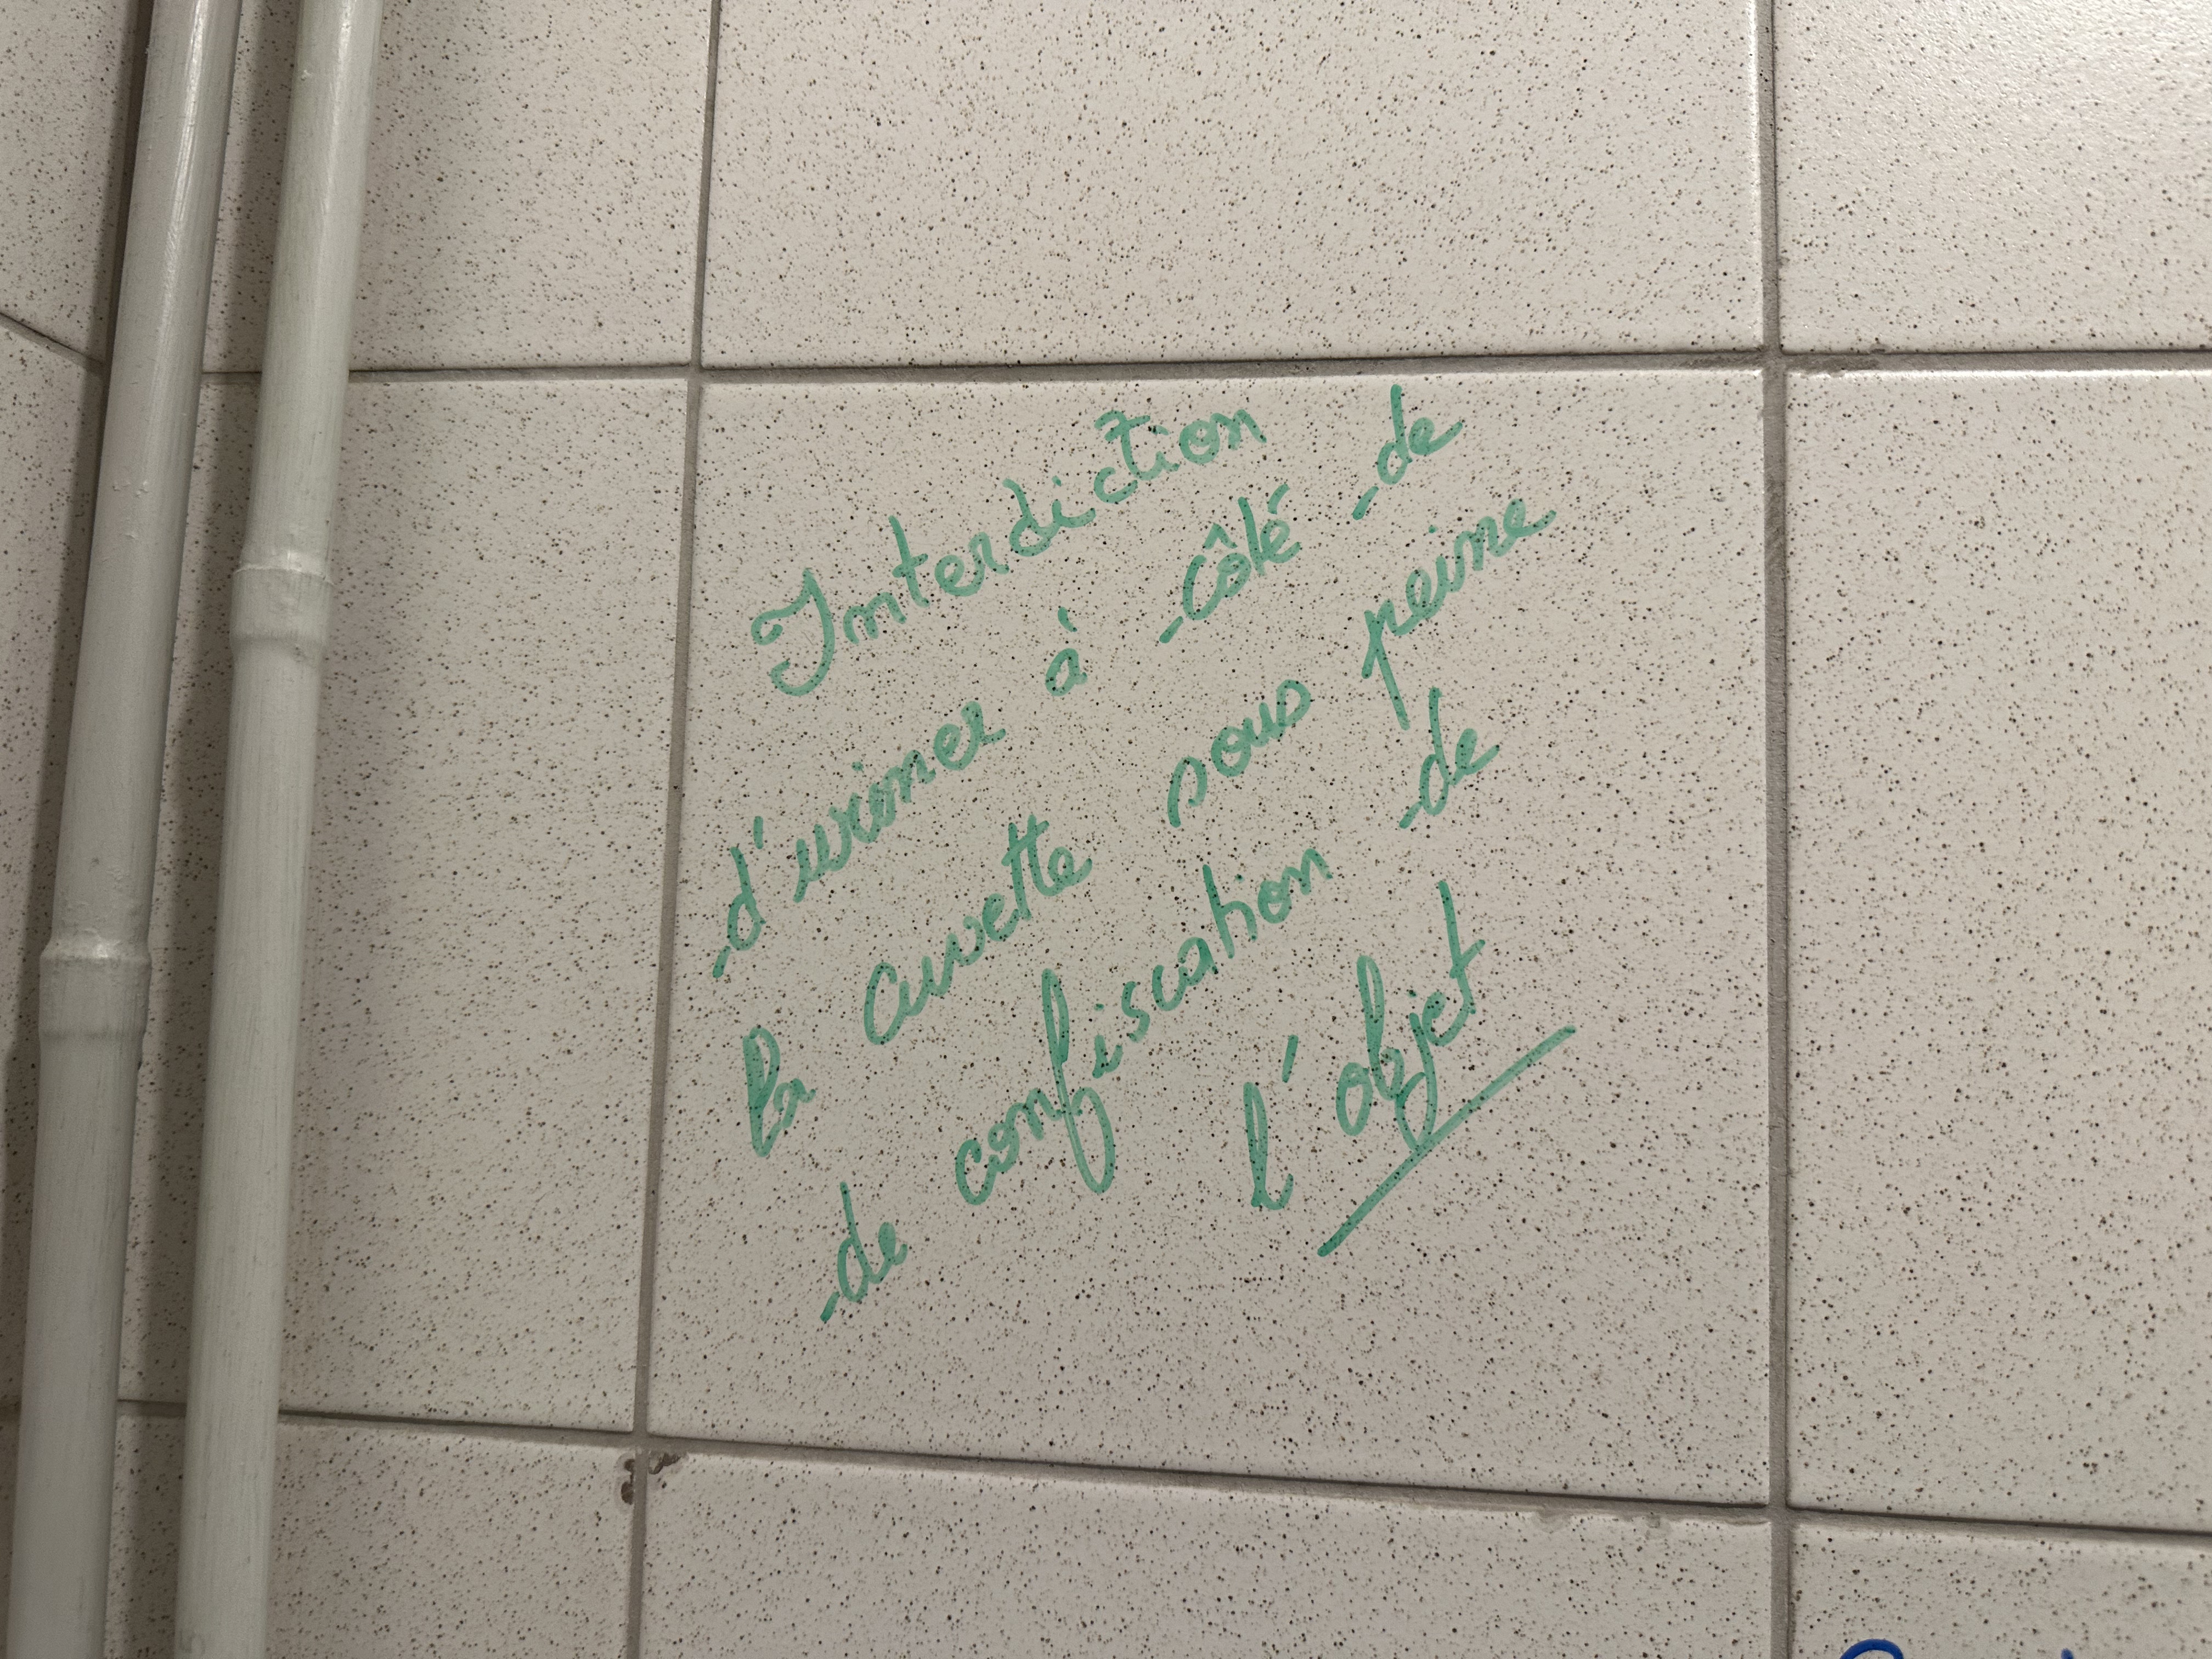 Interdiction
d'uriner à côté de
la cuvette sous peine
de confiscation de
l'objet